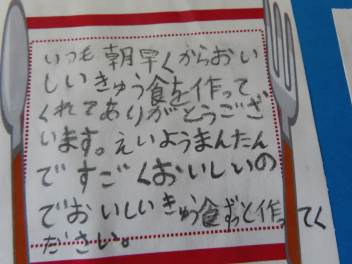 いつも朝早くからおい
しいきゅう食を作って
くれてありがとうござ
います。えいようまんたん
ですごくおいしいの
でおいしいきゅう食ずっと作ってく
ださい。